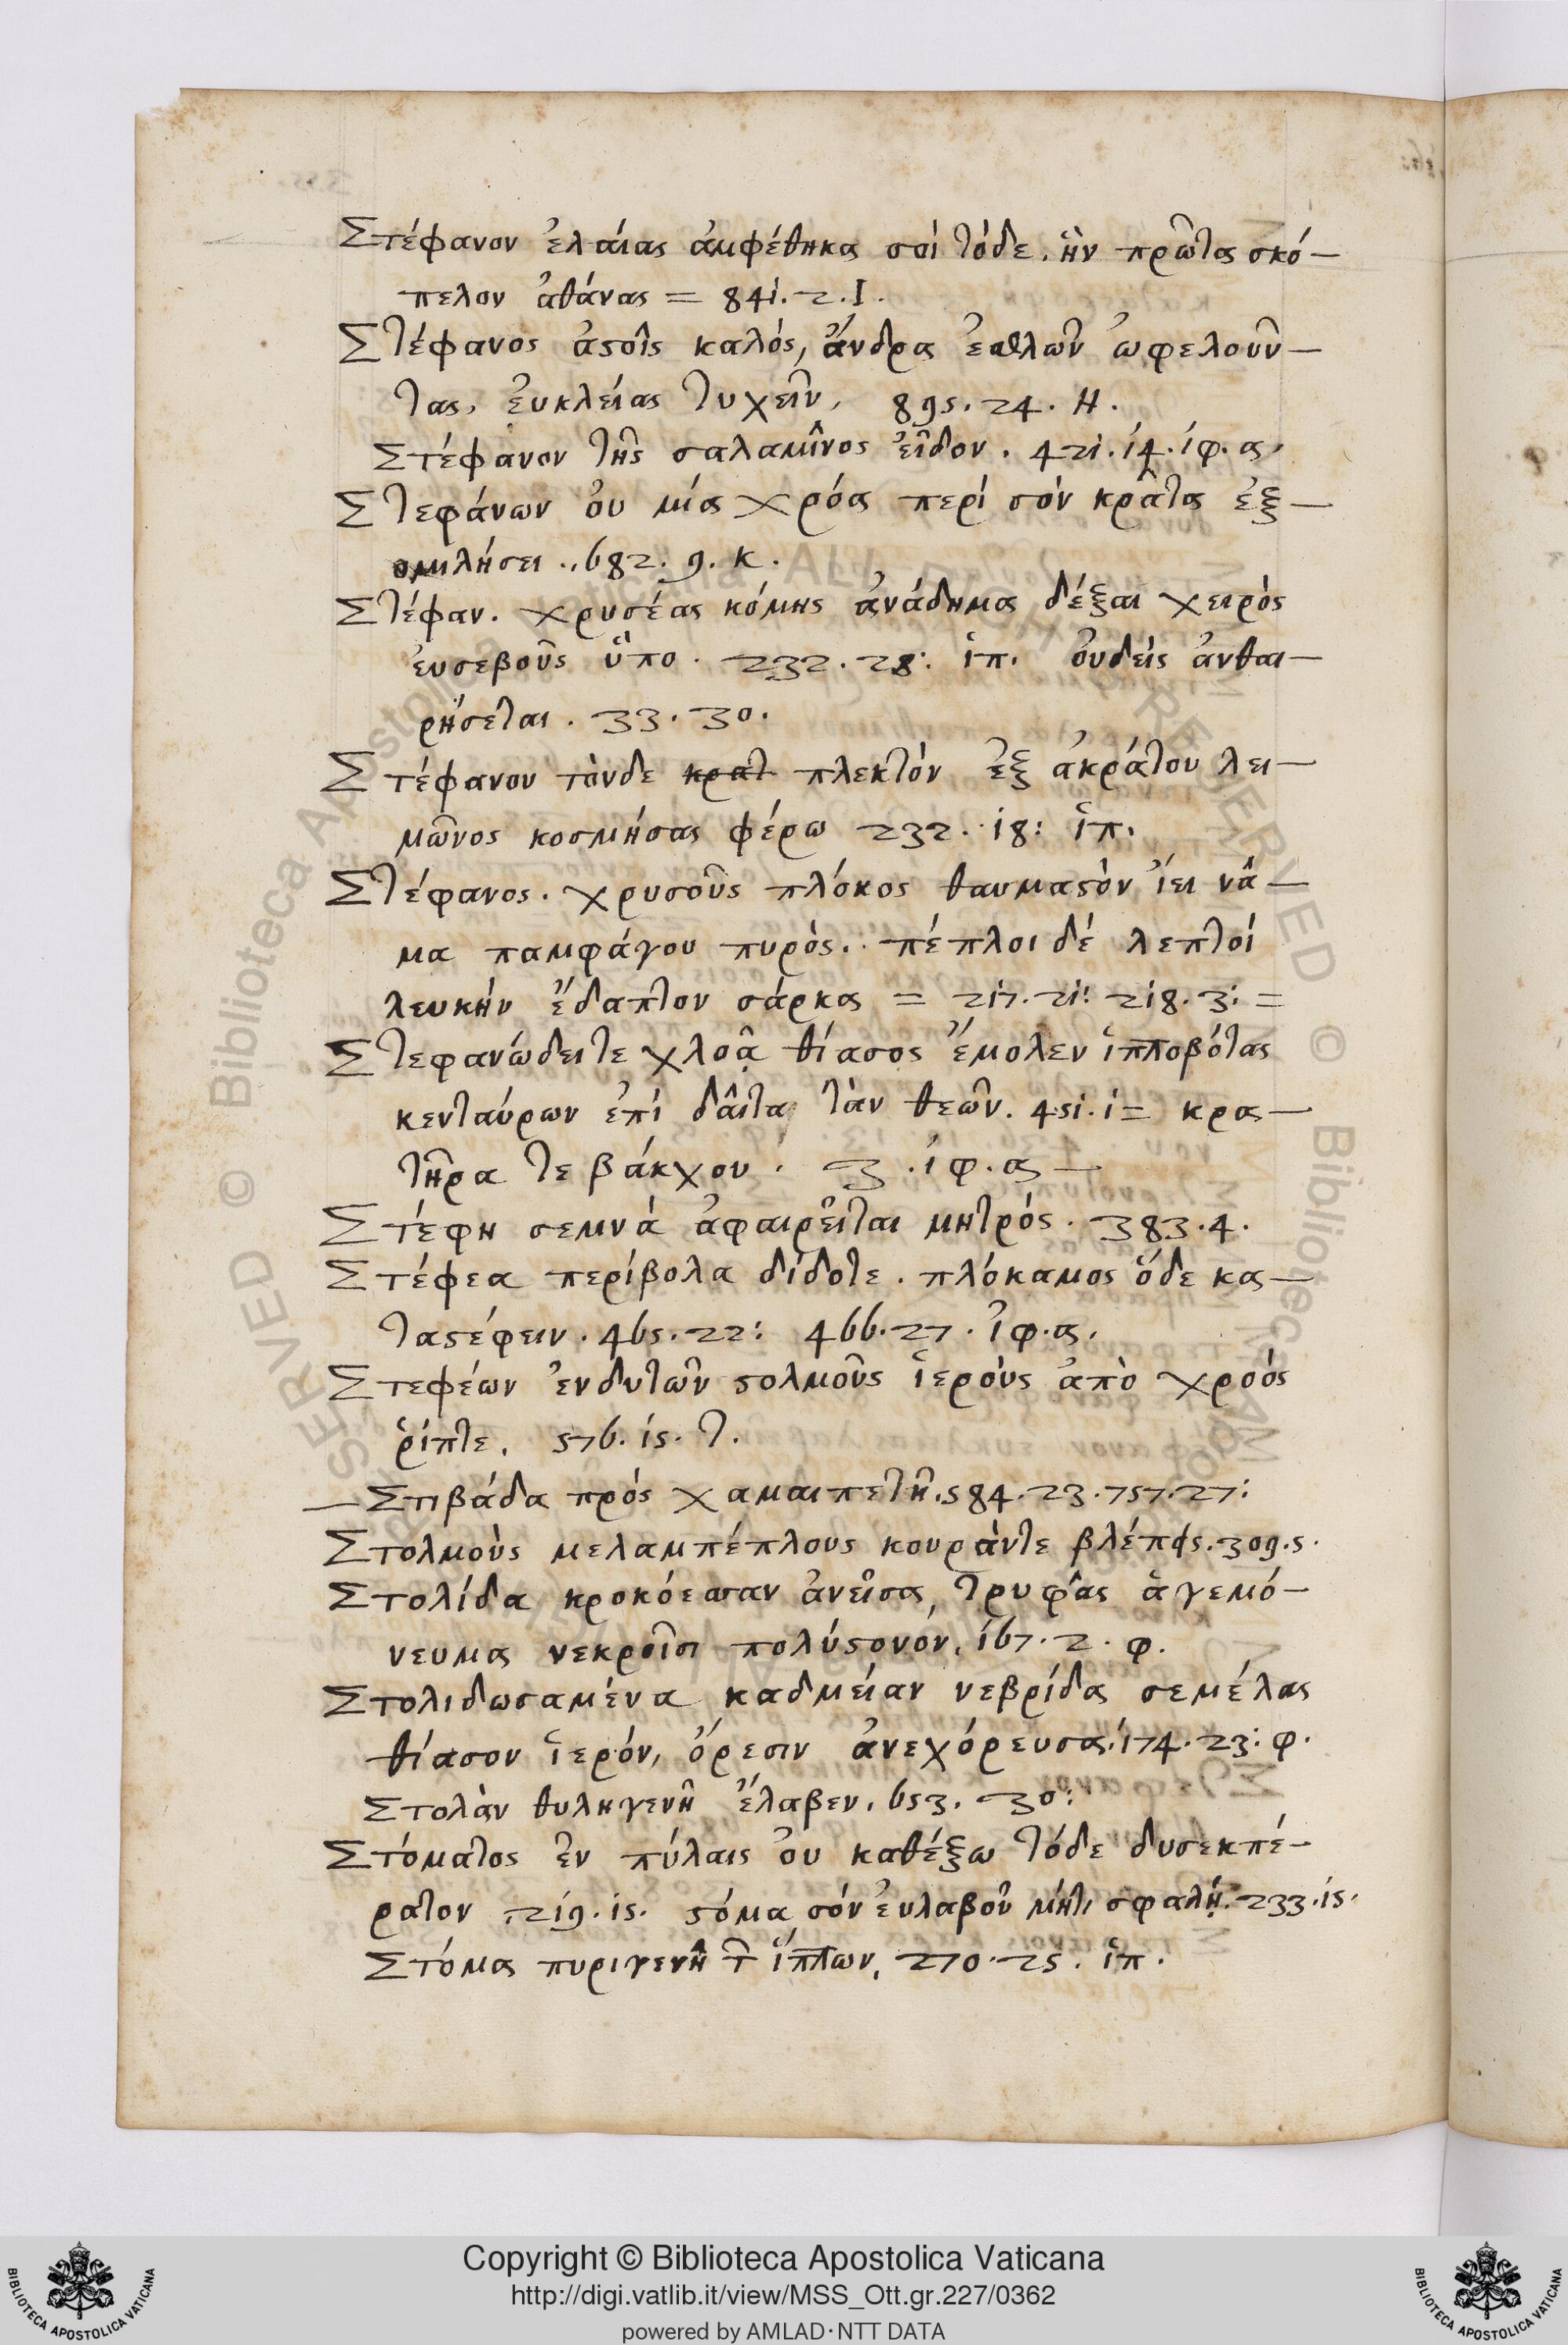 Στέφανον ἐλαίας ἀμφέθηκα σοί τόδε. ἣν πρῶτα σκό—
πελον ἀθάνας = 841. 2. I.
Στέφανος ἀστοῖς καλός, ἄνδρα ἐσθλῶν ὠφελουῦν—
τας, εὐκλείας τυχεῖν, 895. 24. Η.
Στέφανον τῆς σαλαμῖνος εἶδον. 421. 14. ἰφ. α.
Στεφάνων οὐ μία χρόα περί σὸν κρᾶτα ἐξ—
ομιλήσει . 682. 9. κ.
Στέφαν. χρυσέας κόμης ἀνάδημα δέξαι χειρὸς
εὐσεβοῦς ὕπο. 232. 28: ἱπ. οὐδείς ἀνθαι—
ρήσεται. 33. 30.
Στέφανον τόνδε πλεκτόν ἐξ ἀκράτου λει—
μῶνος κοσμήσας φέρω 232. 18: ἱπ.
Στέφανος. χρυσοῦς πλόκος θαυμαστὸν ἵει νᾶ—
μα παμφάγου πυρὸς. πέπλοι δέ λεπτοί
λευκήν ἔδαπτον σάρκα = 217. 21: 218. 3: =
Στεφανώδει τε χλοᾷ θίασος ἔμολεν ἱπποβότας
κενταύρων ἐπί δαῖτα τὰν θεῶν. 451. 1 = κρα—
τῆρα τε βάκχου. 3. ἰφ. α—
Στέφη σεμνὰ ἀφαιρεῖται μητρός. 383. 4.
Στέφεα περίβολα δίδοτε. πλόκαμος ὅδε κα—
ταστέφειν. 465. 22: 466. 27. ἰφ. α.
Στεφέων ἐνδυτῶν στολμοῦς ἱερούς ἀπὸ χροός
ῥίπτε. 576. 15. τ.
—Στιβάδα πρός χαμαιπετῆ. 584. 23. 757. 27:
Στολμοὺς μελαμπέπλους κουράν τε βλέπεις. 309. 5.
Στολίδα κροκόεσσαν ἀνεῖσα, τρυφᾶς ἁγεμό—
νευμα νεκροῖσι πολύστονόν. 167. 2. φ.
Στολιδωσαμένα καδμείαν νεβρίδα σεμέλας
θίασον ἱερόν, ὄρεσιν ἀνεχόρευσα. 174. 23: φ.
Στολὰν θυληγενῆ ἔλαβεν. 653. 30:
Στόματος ἐν πύλαις οὐ καθέξω τόδε δυσεκπέ—
ρατον 219. 15. στόμα σόν εὐλαβοῦ μήτι σφαλῇ. 233. 15.
Στόμα πυριγενῆ τ ἵππων. 270. 25. ἱπ.
Copyright © Biblioteca Apostolica Vaticana
http://digi.vatlib.it/view/MSS_Ott.gr.227/0362
powered by AMLAD·NTT DATA